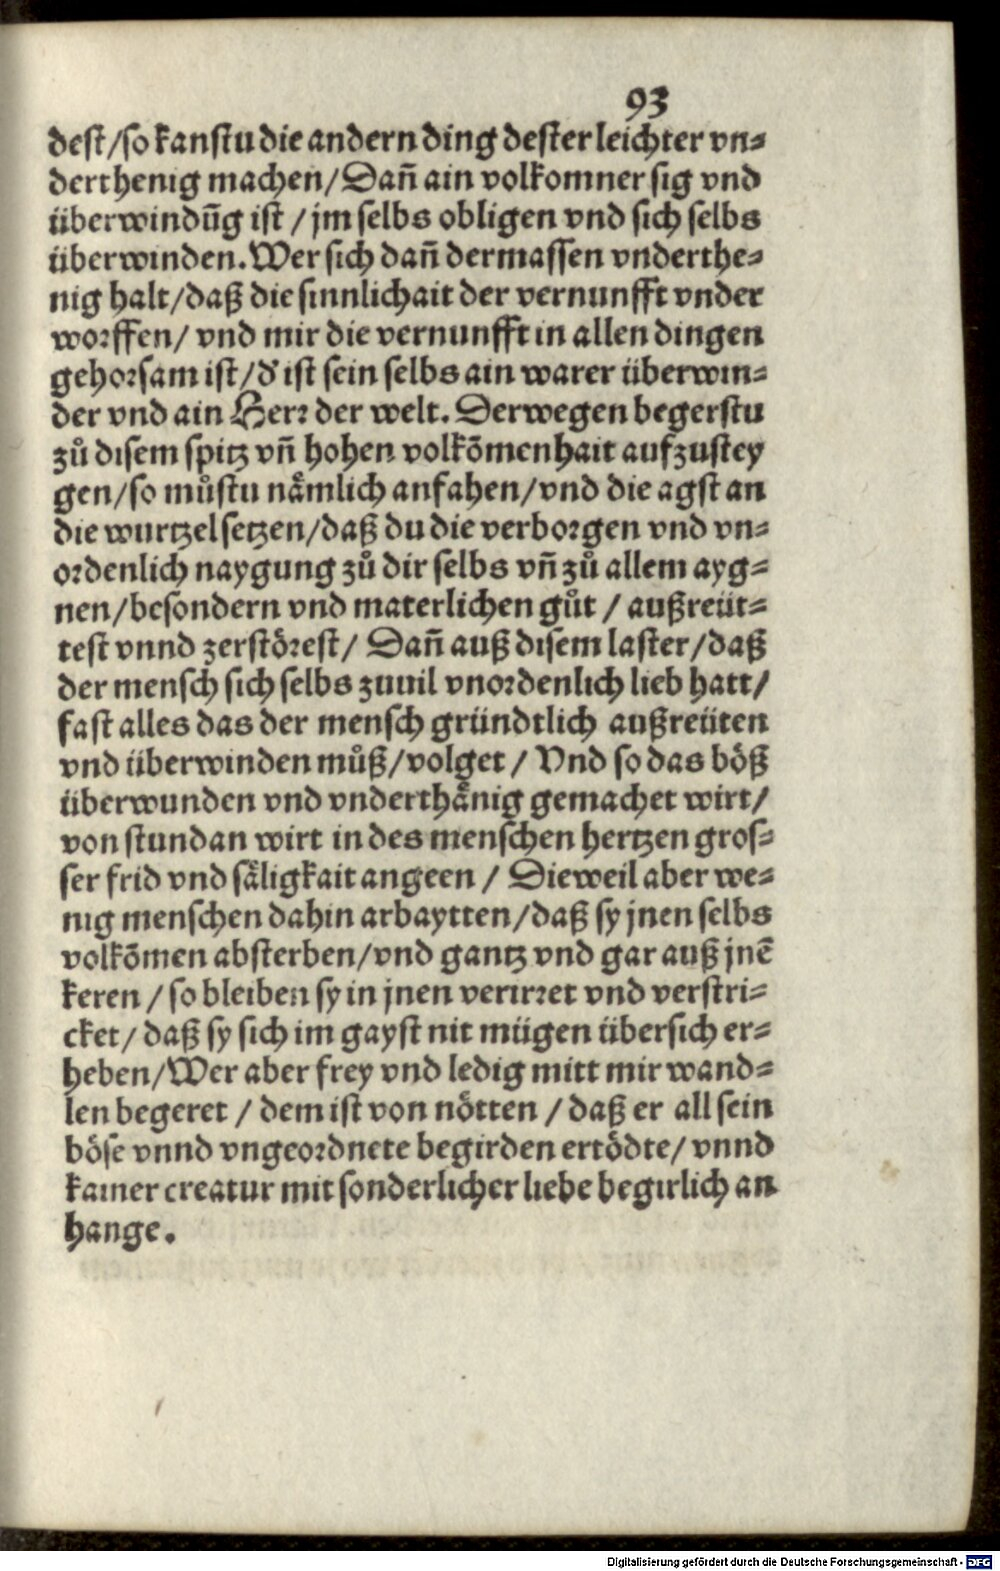 93
dest/so kanstu die andern ding dester leichter vn⸗
derthenig machen/Dañ ain volkomner sig vnd
überwindūg ist /jm selbs obligen vnd sich selbs
überwinden. Wer sich dañ dermassen vnderthe⸗
nig halt/daß die sinnlichait der vernunfft vnder
worffen/ vnd mir die vernunfft in allen dingen
gehorsam ist/d' ist sein selbs ain warer überwin⸗
der vnd ain Herr der welt. Derwegen begerstu
zů disem spitz vñ hohen volkōmenhait aufzustey
gen/so můstu nämlich anfahen/vnd die agst an
die wurtzel setzen/daß du die verborgen vnd vn⸗
ordenlich naygung zů dir selbs vñ zů allem ayg⸗
nen/besondern vnd materlichen gůt / außreüt⸗
test vnnd zerstörest/ Dañ auß disem laster/daß
der mensch sich selbs zuuil vnordenlich lieb hatt/
fast alles das der mensch gründtlich außreüten
vnd überwinden můß/volget / Vnd so das böß
überwunden vnd vnderthänig gemachet wirt/
von stundan wirt in des menschen hertzen gros⸗
ser frid vnd säligkait angeen / Dieweil aber we⸗
nig menschen dahin arbaytten/daß sy jnen selbs
volkōmen absterben/vnd gantz vnd gar auß jnē
keren / so bleiben sy in jnen verirret vnd verstri⸗
cket/ daß sy sich im gayst nit mügen übersich er⸗
heben/Wer aber frey vnd ledig mitt mir wand⸗
len begeret / dem ist von nötten / daß er all sein
böse vnnd vngeordnete begirden ertödte/ vnnd
kainer creatur mit sonderlicher liebe begirlich an
hange.
Digitalisierung gefördert durch die Deutsche Forschungsgemeinschaft - DFG